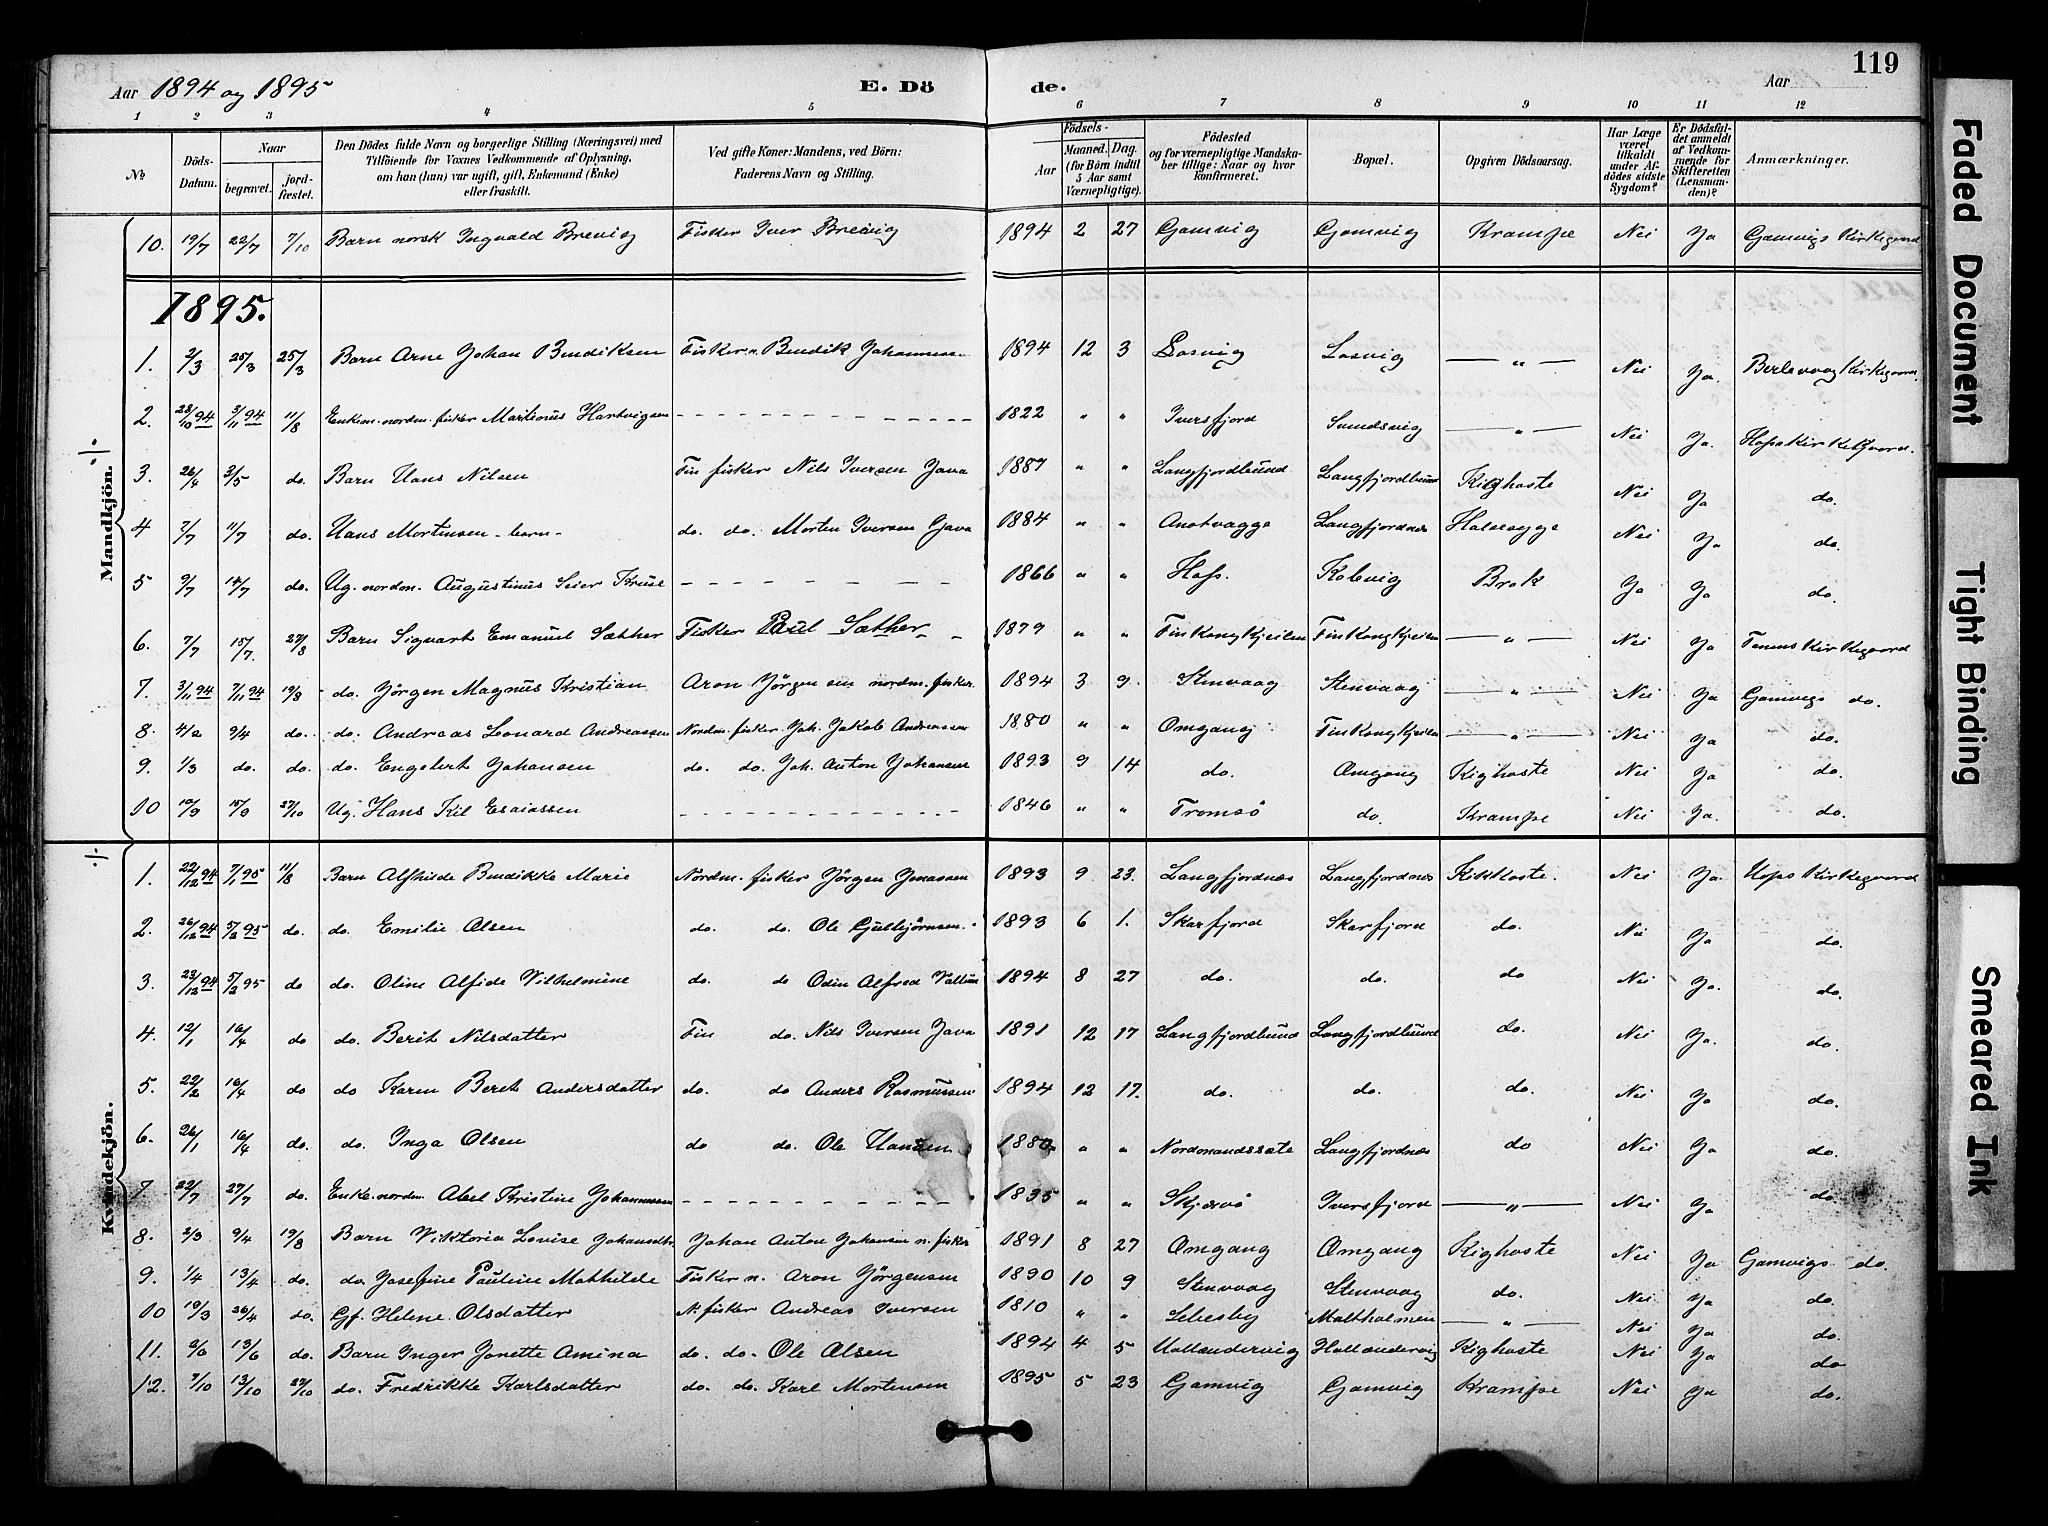 119
Aar 1894 og 1895 E. Dö de. Aar
1 2 3 4 5 6 7 8 9 10 11 12
No
Döds-Datum.
Naar
begravet.
jord-fæstet.
Den Dödes fulde Navn og borgerlige Stilling (Næringsvei) med
Tilföiende for Voxnes Vedkommende af Oplysning,
om han (hun) var ugift, gift, Enkemand (Enke)
eller fraskilt.
Ved gifte Koner: Mandens, ved Börn:
Faderens Navn og Stilling.
Födsels-
Aar
Maaned. Dag.
(for Börn indtil
5 Aar samt
Værnepligtige).
Födested
og for værnepligtige Mandska-
ber tillige: Naar og hvor
konfirmeret.
Bopæl.
Opgiven Dödsaarsag.
Har Læge
været
tilkaldt
under Af-
dödes sidste
Sygdom?
Er Dödsfal-
det anmeldt
af Vedkom-
mende for
Skifteretten
(Lensman-
den)?
Anmærkninger.
Mandkjön.
10. 19/7 22/7 7/10 Barn norsk Ingvald Brevig Fisker Iver Brevig 1894 2 27 Gamvig Gamvig Krampe Nei Ja Gamvigs Kirkegaard
1895.
1. 2/3 25/3 25/3 Barn Arne Johan Bendiksen Fisker n. Bendik Johannesen 1894 12 3 Losvig Losvig — " — Nei Ja. Berlevaag Kirkegaard.
2. 28/10 94 3/11 94 11/8 Enkem. nordm. fisker Martinus Hartvigsen - - - 1822 " " Iversfjord Sundsvig — " — Nei Ja. Hops Kirkegaard.
3. 26/4 3/5 do. Barn Hans Nilsen Fin fisker Nils Iversen Java 1887 " " Langfjordbund Langfjordbund Kighoste Nei Ja do.
4 7/7 11/7 do. Hans Mortensen - barn - do. do. Morten Iversen Java 1884 " " Langfjordnes Halssyge Nei Ja do.
5 9/7 14/7 do. Ug. nordm. Augustinus Seier Kruse - - - 1866 " " Hops. Kolvig Brok Ja Ja do.
6. 7/7 15/7. 27/8 Barn Sigvart Emanuel Sæther Fisker Paul Sæther - - 1879 " " Finkongkjeilen Finkongkjeilen — " — Nei Ja Tanens Kirkegaard
7. 3/11 94 7/11 94 19/8 do. Jörgen Magnus Kristian Aron Jörgensen nordm. fisker 1894 3 9 Stenvaag Stenvaag — " — Nei Ja Gamvigs do.
8. 4/2 9/4 do. do. Andreas Leonard Andreassen Nordm. fisker Joh. Jakob Andreassen 1880 " " Omgang Finkongkjeilen — " — Nei Ja do.
9. 1/3 do. do. do. Engebret Johansen do. do. Joh. Anton Johansen 1893 9 14 do. Omgang Kighoste Nei Ja do.
10 10/9 15/9 27/10 Ug. Hans Kil Esaiassen - - - 1846 " " Tromsö do. Krampe Nei Ja. do.
Kvindekjön.
1. 22/12 94 7/1 95 11/8 Barn Alfhilde Bendikke Marie Nordm. fisker Jörgen Jonassen 1893 9 23. Langfjordnes Langfjordnes Kikhoste. Nei Ja. Hops Kirkegaard
2. 26/12 94 5/2 95 do. do. Emilie Olsen do. do. Ole Gulbjörnsen. 1893 6 1. Skarfjord Skarfjord do. Nei Ja do.
3. 23/12 94 5/2 95 do do. Oline Alfide Vilhelmine do. do Odin Alfred 1894 8 27 do. do. do Nei Ja. do.
4. 12/1 16/4 do do. Berit Nilsdatter Fin do. Nils Iversen Java 1891 12 17 Langfjordbund Langfjordbund do. Nei Ja. do.
5. 22/2 16/4 do do Karen Beret Andersdatter do. do Anders Rasmussen 1894 12 17. do. do. do. Nei Ja do.
6. 26/1 16/4 do. do. Inga Olsen do do. Ole Hansen 1880 " " Nordmandssæte Langfjordnes do Nei Ja do.
7. 22/7 27/7 do. Enke. nordm. Abel Kristine Johannessen - - - 1835 " " Skjervö Iversfjord — " — Nei Ja do.
8. 2/3 9/4 19/8 Barn Viktoria Lovise Johansdtr. Johan Anton Johansen n. fisker 1891 8 27 Omgang Omgang Kighoste Nei Ja Gamvigs do.
9. 1/4 13/4 do. do. Josefine Pauline Mathilde Fisker n. Aron Jörgensen 1890 10 9 Stenvaag Stenvaag do. Nei Ja do.
10 19/3 26/4 do. Gf. Helene Olsdatter N. fisker Andreas Iversen 1810 " " Lebesby Maltholmen — " — Nei Ja do.
11. 9/6 13/6 do. Barn Inger Jonette Amina do. do. Ole Olsen 1894 4 5 Hollændervig Hollændervig Kighoste Nei Ja do
12. 7/10 13/10 27/10 do. Fredrikke Karlsdatter do. do. Karl Mortensen 1895 5 23 Gamvig Gamvig Krampe Nei Ja do.
Faded Document
Tight Binding
Smeared Ink